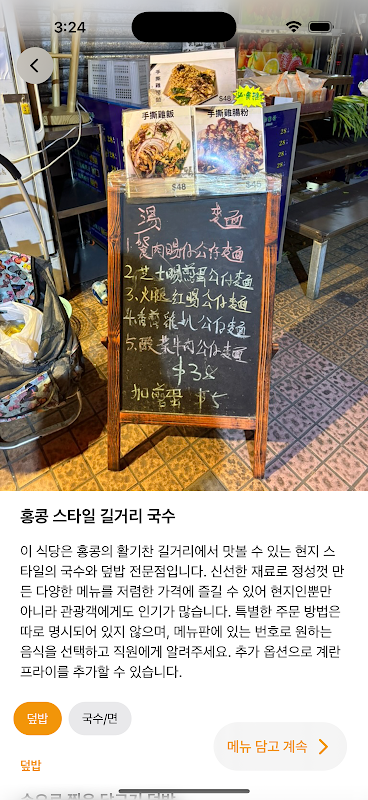 3:24
手撕雞
$48
手撕雞飯
手撕雞腸粉
$48
湯 麵
1.餐肉腸仔公仔麵
2.芝士腸煎蛋公仔麵
3.火腿紅腸公仔麵
4.香煎雞扒公仔麵
5.酸菜牛肉公仔麵
$38
加煎蛋 $5
홍콩 스타일 길거리 국수
이 식당은 홍콩의 활기찬 길거리에서 맛볼 수 있는 현지 스
타일의 국수와 덮밥 전문점입니다. 신선한 재료로 정성껏 만
든 다양한 메뉴를 저렴한 가격에 즐길 수 있어 현지인뿐만
아니라 관광객에게도 인기가 많습니다. 특별한 주문 방법은
따로 명시되어 있지 않으며, 메뉴판에 있는 번호로 원하는
음식을 선택하고 직원에게 알려주세요. 추가 옵션으로 계란
프라이를 추가할 수 있습니다.
덮밥
국수/면
메뉴 담고 계속
덮밥